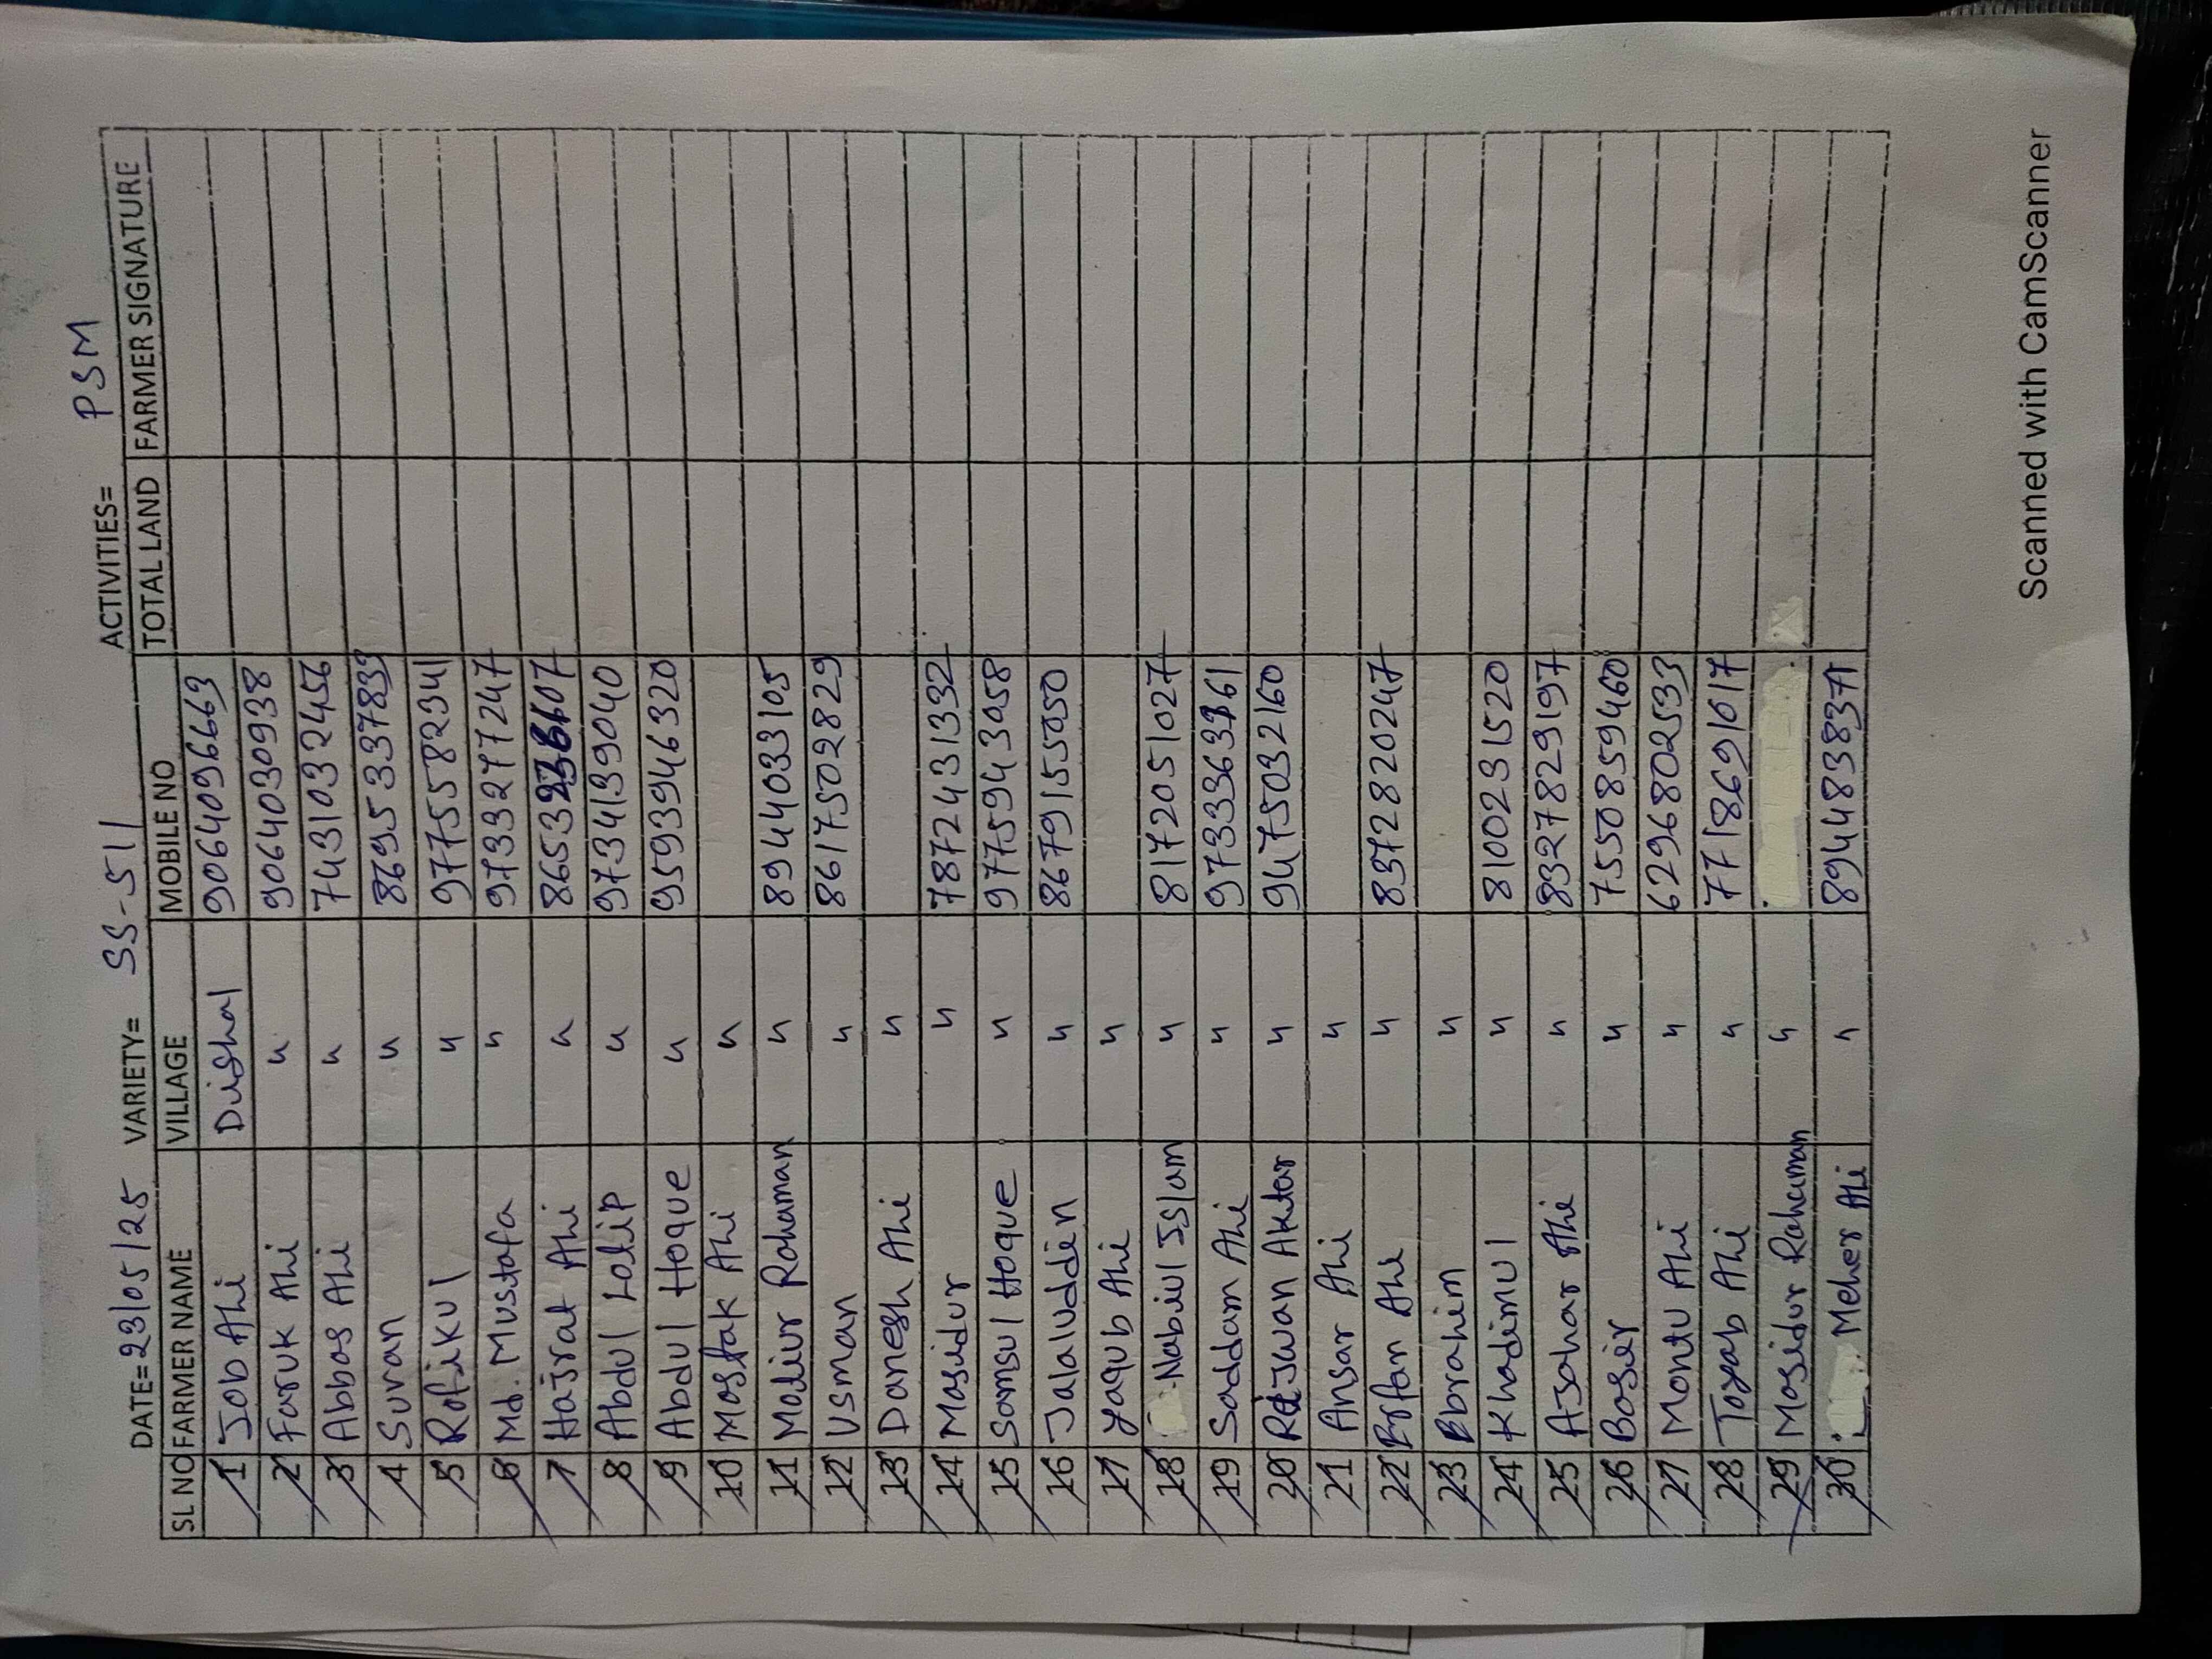 DATE=23/05/25 VARIETY= SS-511 ACTIVITIES= PSM
SL NO FARMER NAME VILLAGE MOBILE NO TOTAL LAND FARMER SIGNATURE
1 Job Ali Dishal 9064096663
2 Faruk Ali " 9064030938
3 Abbas Ali " 7431032456
4 Suvan " 8695337839
5 Rofikul " 9775582341
6 Md. Mustafa " 9733277247
7 Hajrat Ali "
8 Abdul Lotip " 9734139040
9 Abdul Hoque " 9593946320
10 Mostak Ali "
11 Motiur Rohaman " 8944033105
12 Usman " 8617502829
13 Danesh Ali "
14 Mosidur " 7872431332
15 Somsul Hoque " 9775943058
16 Jalaluddin " 8679155050
17 Yaqub Ali "
18 Nabiul Islam " 8172051027
19 Saddam Ali "
20 Rejwan Aktar " 9475032160
21 Ansar Ali "
22 Erfan Ali " 8372820247
23 Ebrahim "
24 Khadimul " 8100231520
25 Ajahar Ali " 8327829197
26 Bosir " 7550859460
27 Montu Ali " 6296802533
28 Toyab Ali " 7718691017
29 Mosidur Rahaman "
30 Meher Ali " 8944838371
Scanned with CamScanner